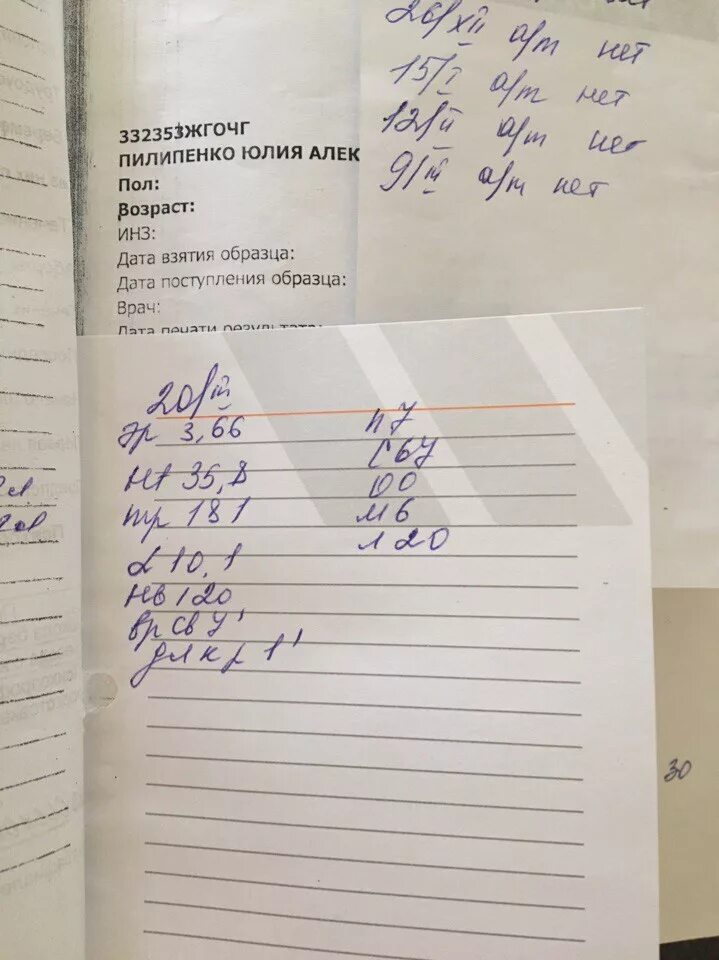 26/XII а/т нет
15/I а/т нет
12/II а/т нет
9/III а/т нет
332353ЖГОЧГ
ПИЛИПЕНКО ЮЛИЯ АЛЕК
Пол:
Возраст:
ИНЗ:
Дата взятия образца:
Дата поступления образца:
Врач:
Дата печати результата:
20/III
эр 3,66
Ht 35,8
тр 181
L 10,1
Нв 120
вр св 4'
дл кр 1'
п 7
с 67
э 0
м 6
л 20
30